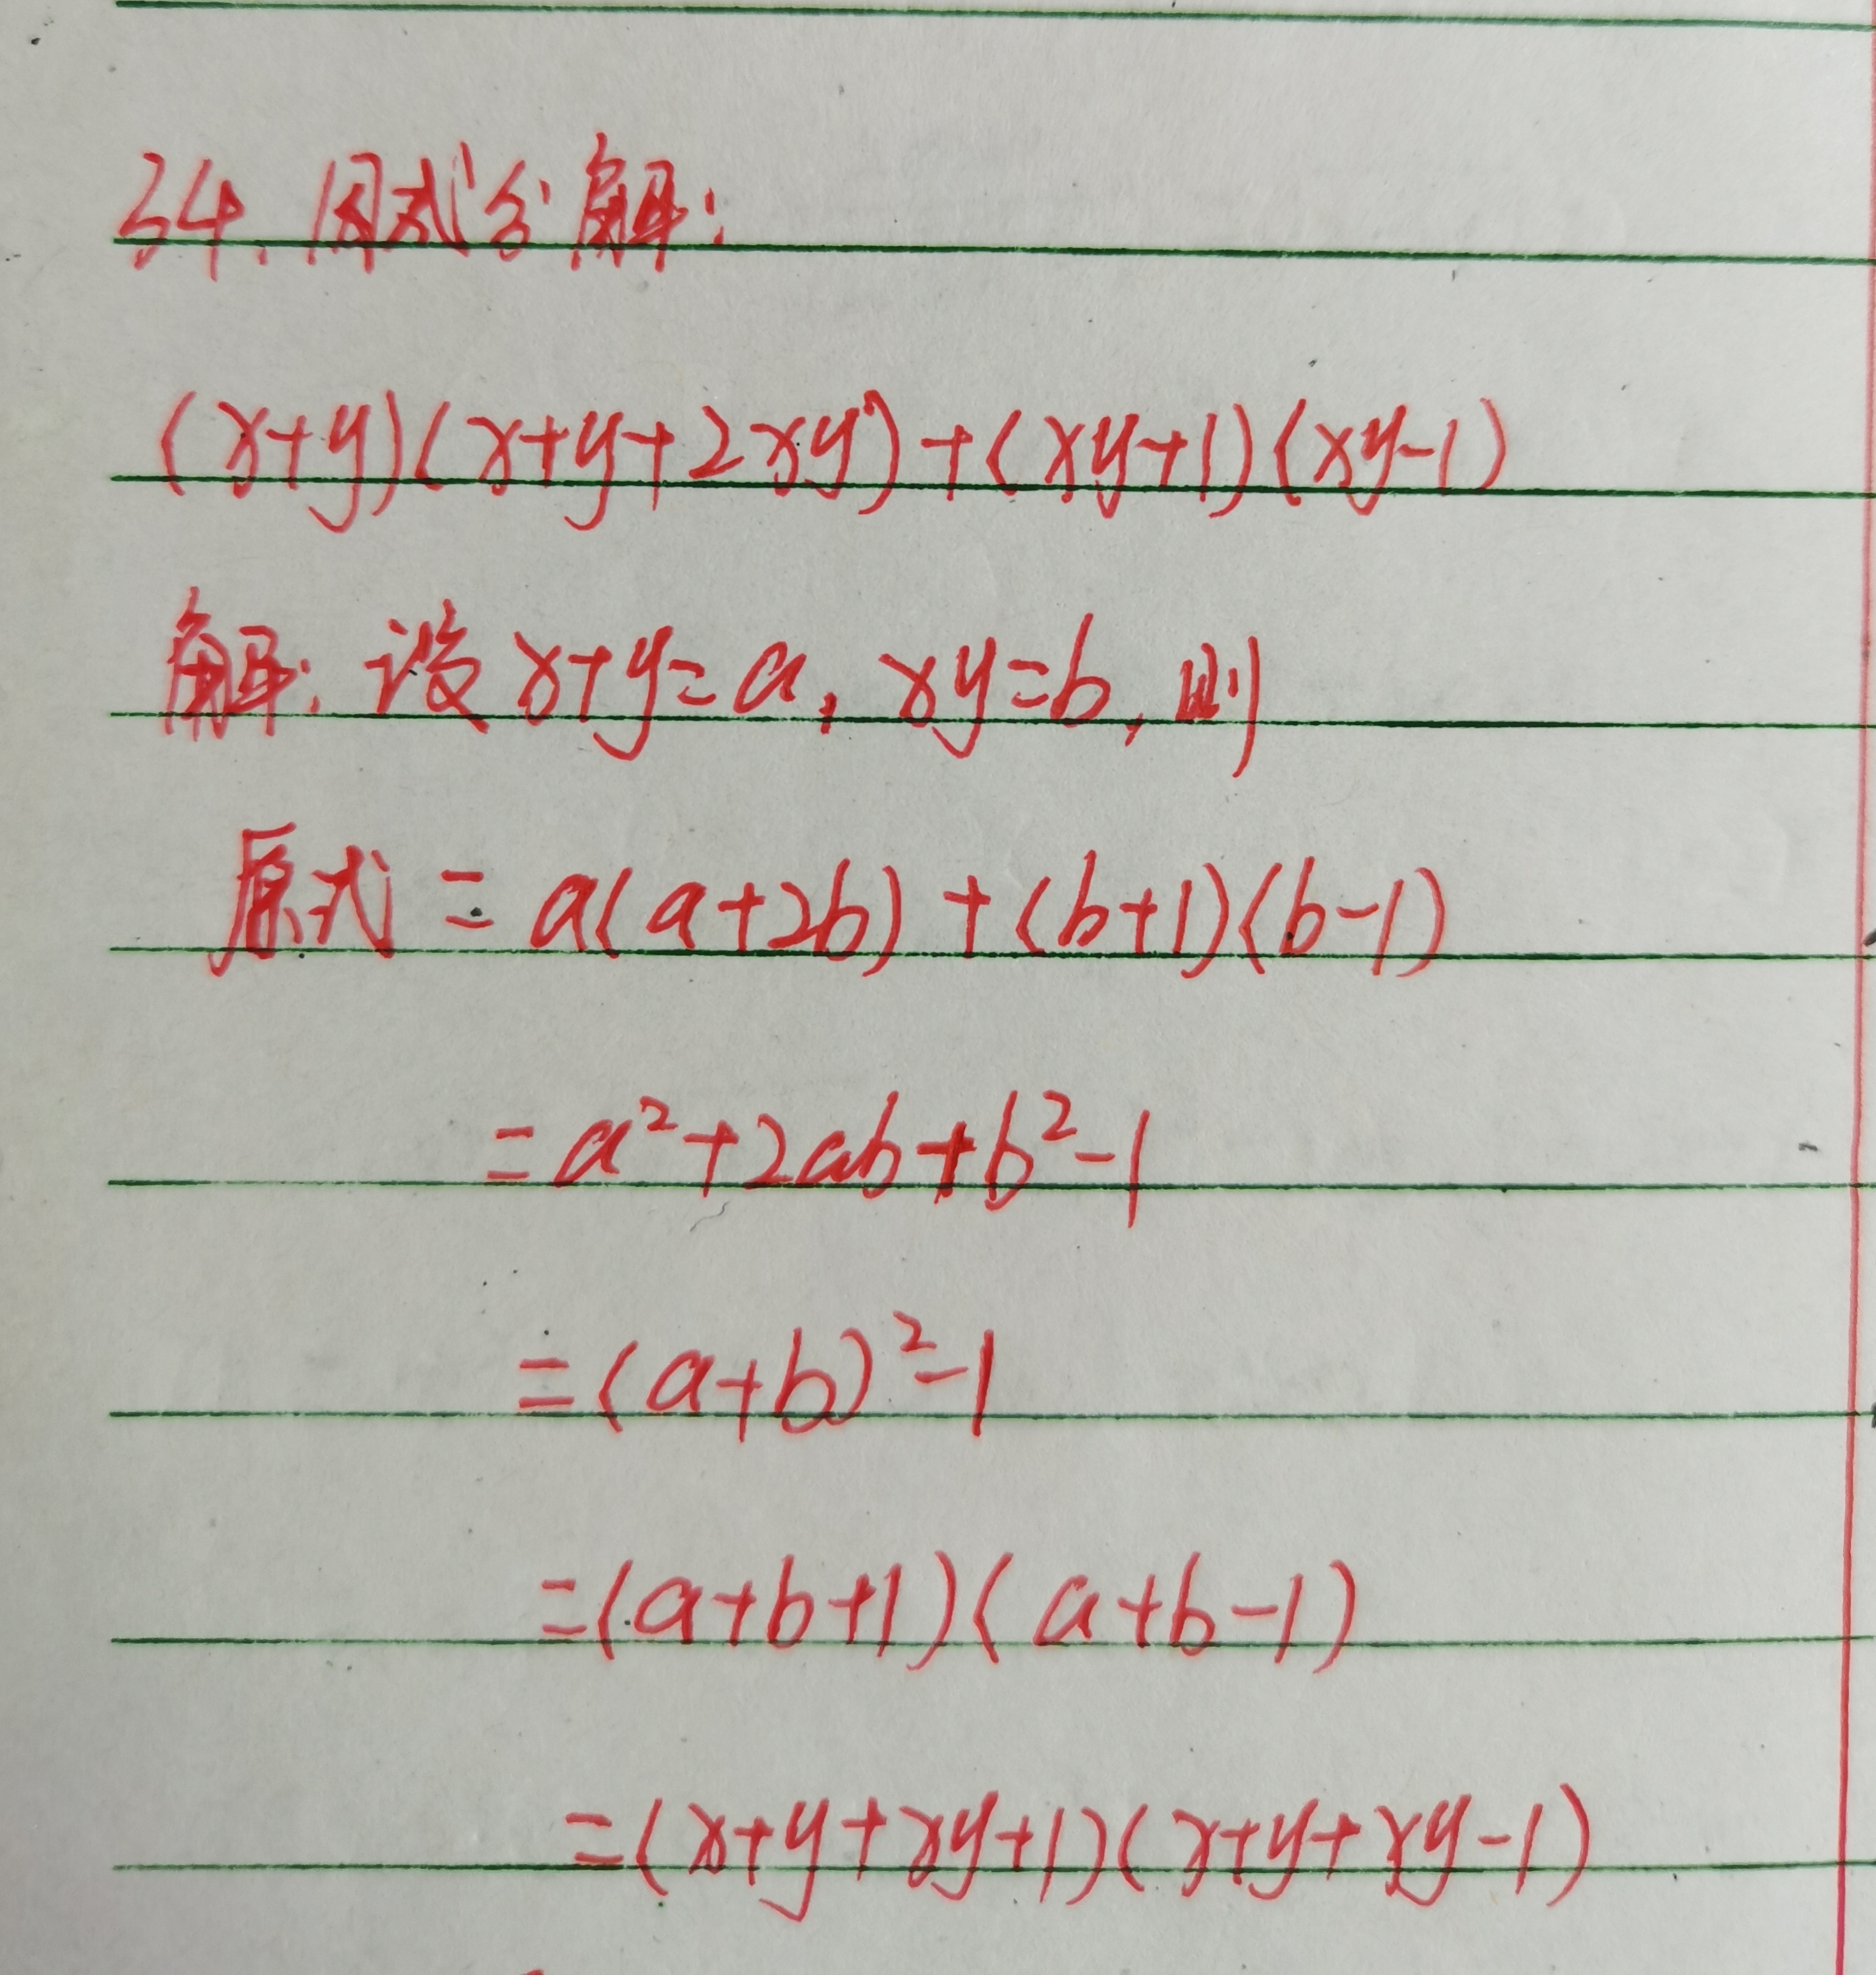 34. 因式分解:
(x+y)(x+y+2xy)+(xy+1)(xy-1)
解: 设x+y=a, xy=b, 则
原式=a(a+2b)+(b+1)(b-1)
=a²+2ab+b²-1
=(a+b)²-1
=(a+b+1)(a+b-1)
=(x+y+xy+1)(x+y+xy-1)